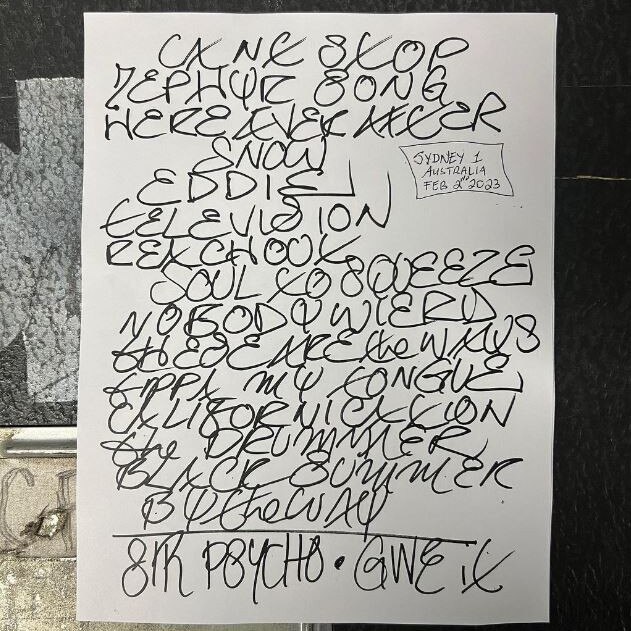 CANT STOP
ZEPHYR SONG
HERE EVER AFTER
SNOW
EDDIE
SYDNEY 1
AUSTRALIA
FEB 2ND 2023
TELEVISION
REACH OUT
SOUL TO SQUEEZE
NOBODY WIERD
THESE ARE the WAYS
TIPPA MY TONGUE
CALIFORNICATION
the DRUMMER
BLACK SUMMER
BY the WAY
SIR PSYCHO • GIVE iT